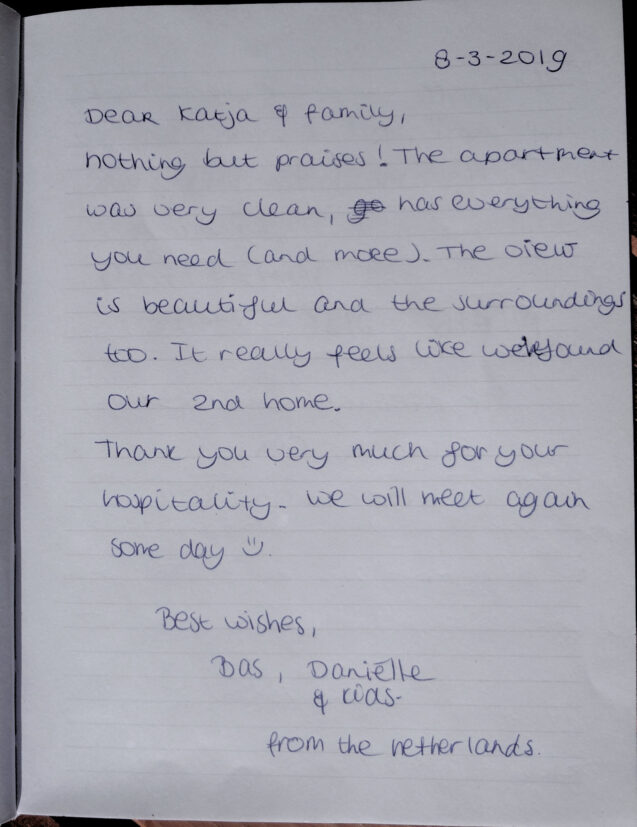 8-3-2019
Dear Katja & family,
nothing but praises! The apartment
was very clean, has everything
you need (and more). The view
is beautiful and the surroundings
too. It really feels like we found
our 2nd home.
Thank you very much for your
hospitality. We will meet again
some day
Best wishes,
Bas, Daniëlle
& kids.
from the netherlands.